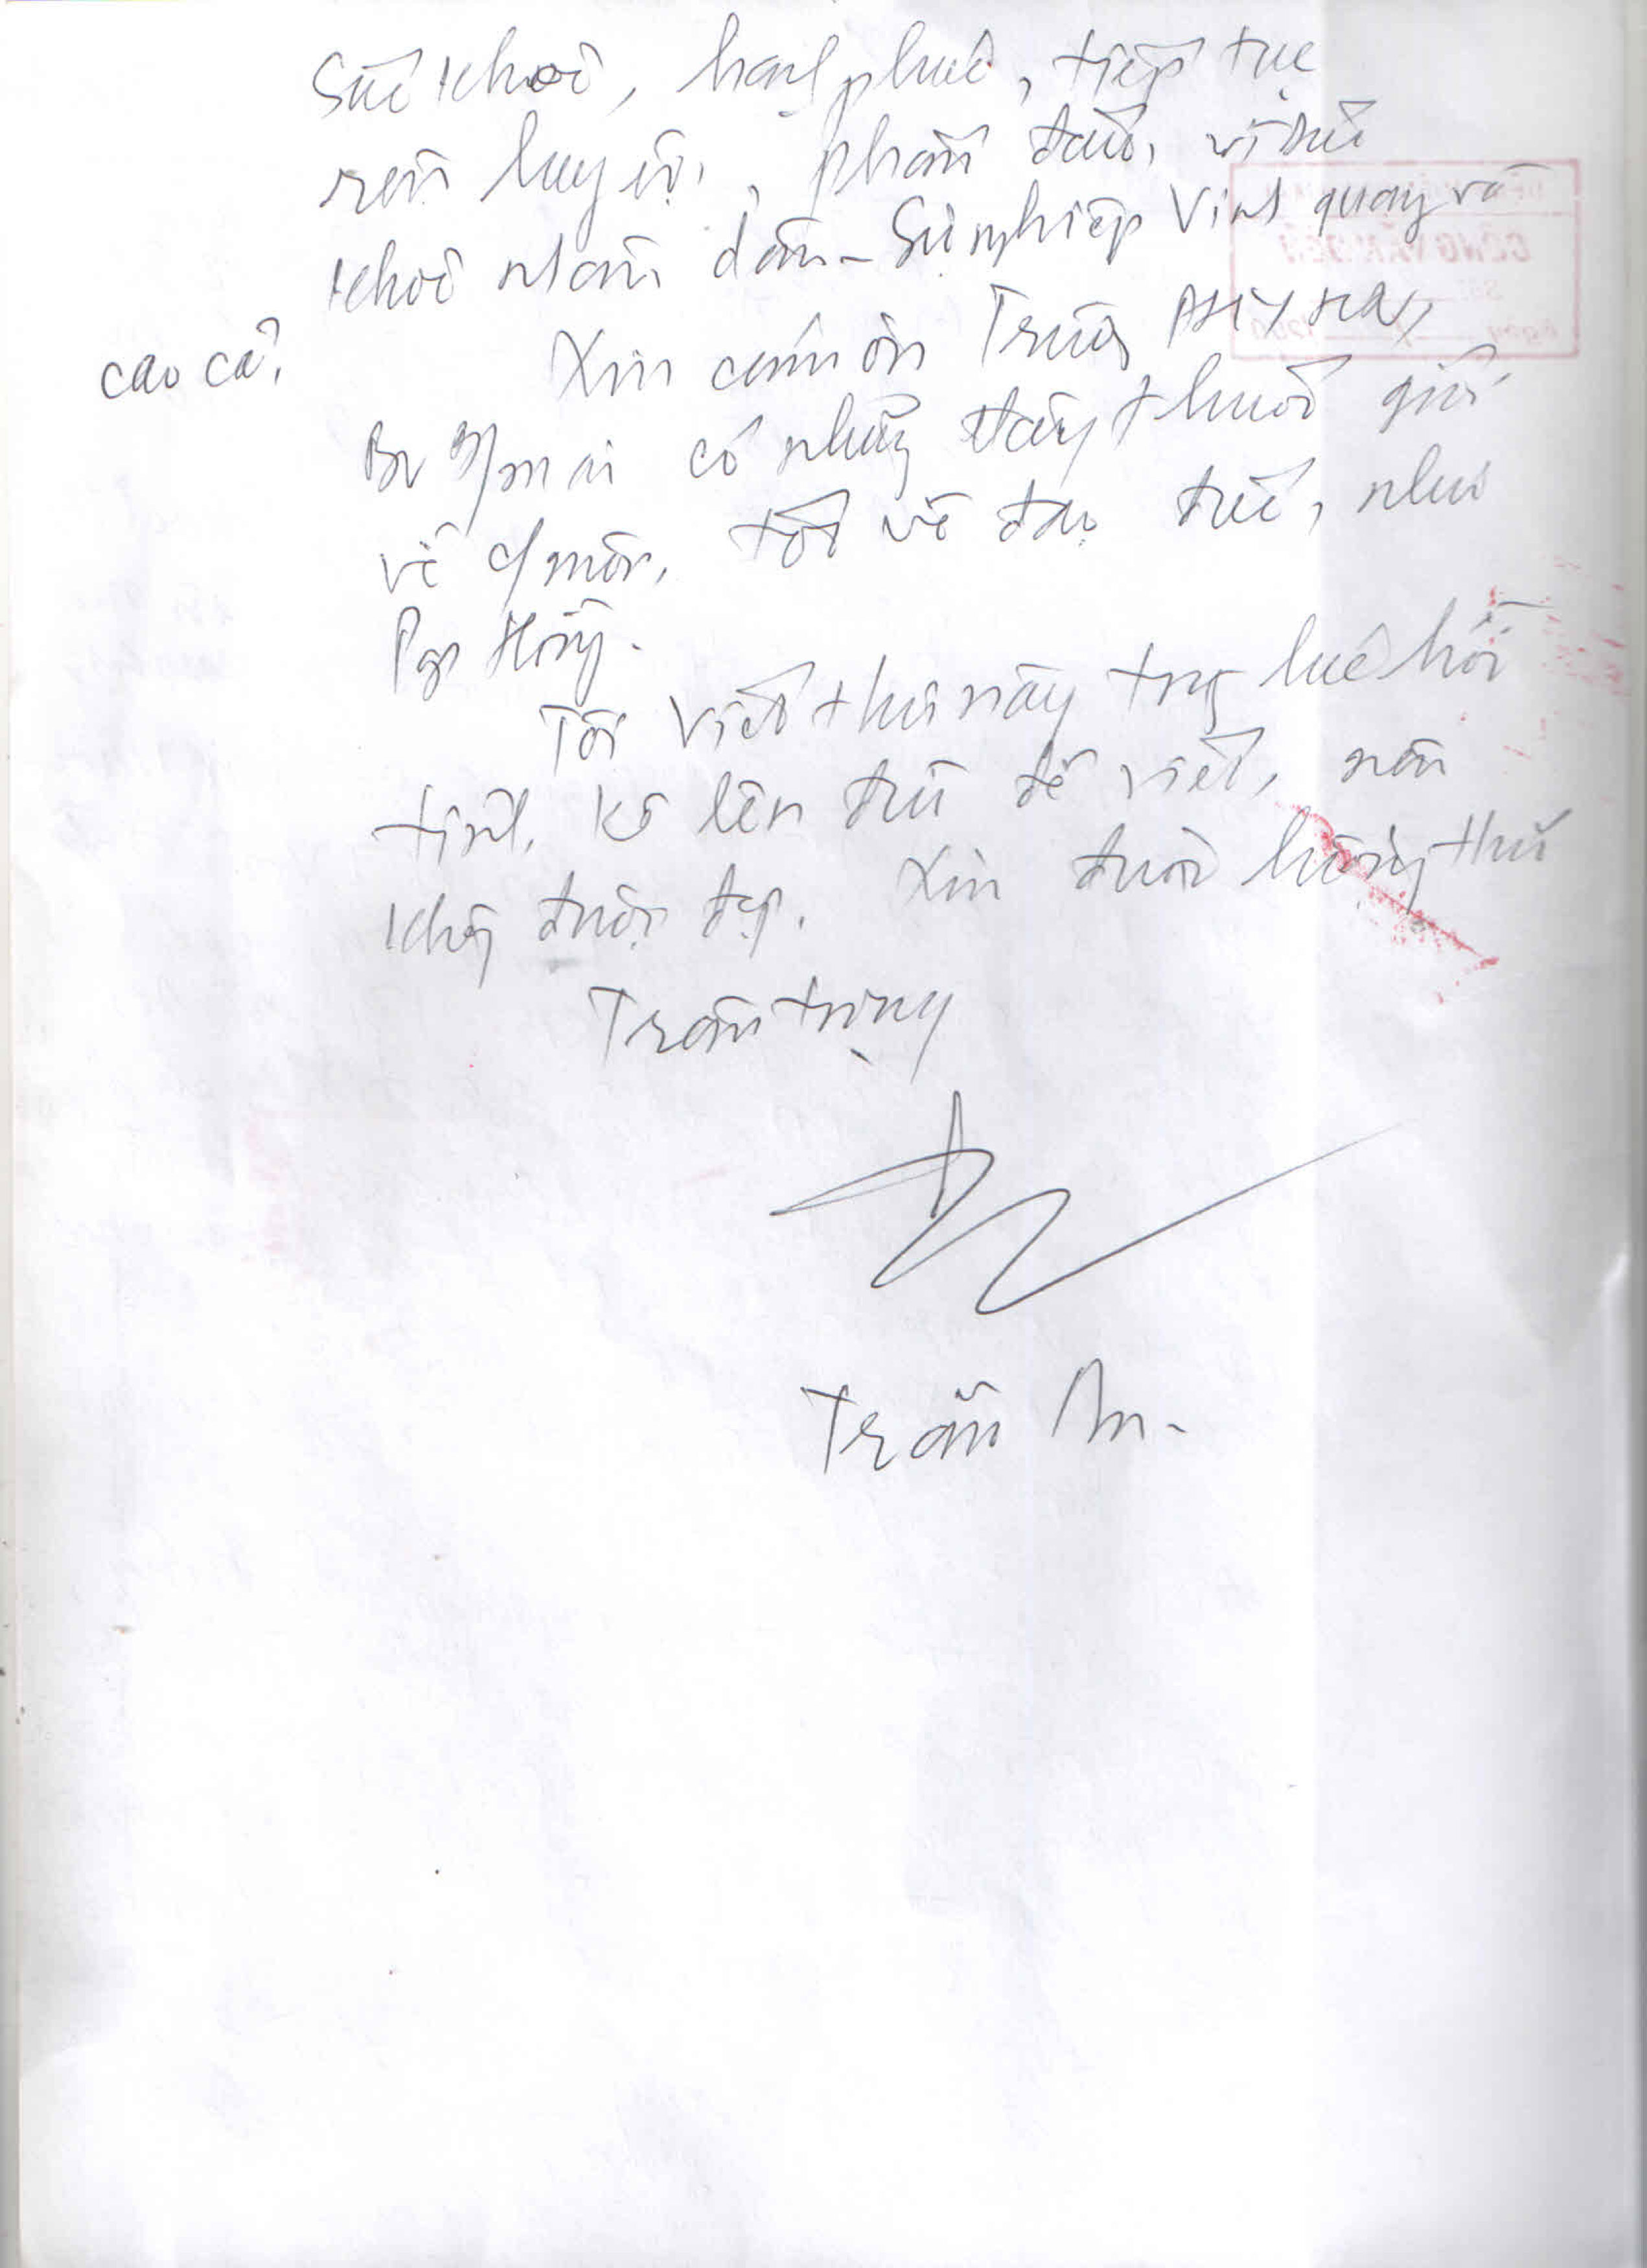 Sức khoẻ, hạnh phúc, tiếp tục
rèn luyện, phấn đấu, vì sức
khoẻ nhân dân - Sự nghiệp Vinh quang và
cao cả.
Xin cám ơn Trường ĐHY HN,
BV B/mai có những thầy thuốc giỏi
về c/môn, tốt về đạo đức, như
Pgs Hùng.
Tôi viết thư này trg lúc hồi
tỉnh, Kô lên đủ để viết, nên
không được đẹp. Xin được lượng thứ
Trân trọng
Trần An.
CÔNG VĂN ĐẾN
Số:
Ngày